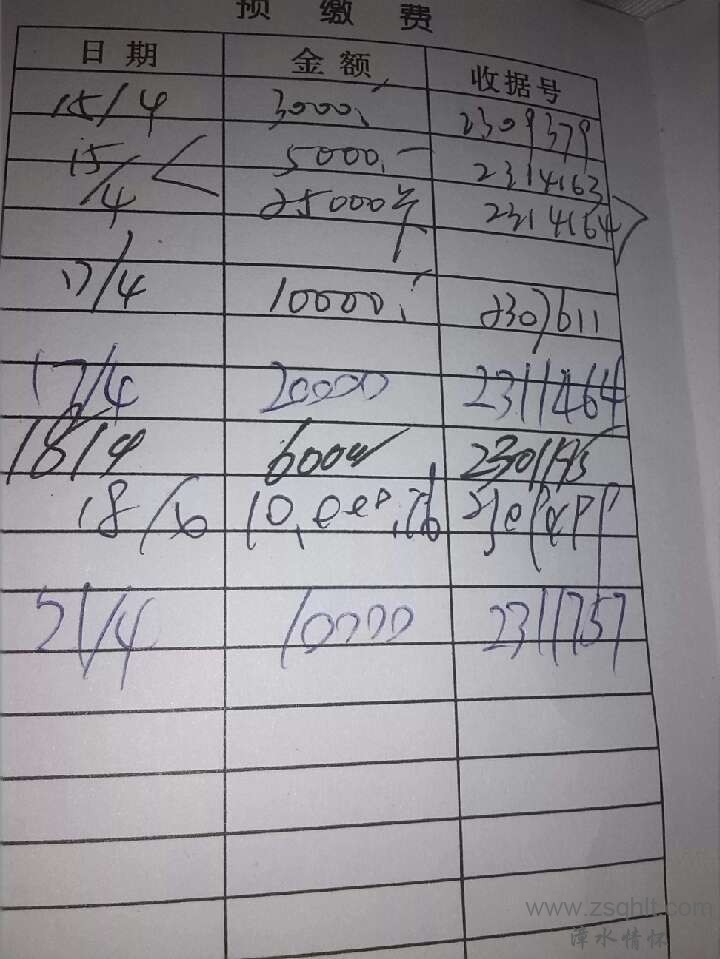 预 缴 费
日 期 金 额 收据号
15/4 3000. 2309379
15/4 5000.— 2314163
25000 2314164
17/4 10000. 2307611
17/4 20000 2311464
18/4 6000
18/ 10,000.
21/4 10000 2311757
www.zsqhlt.com
漳水情怀